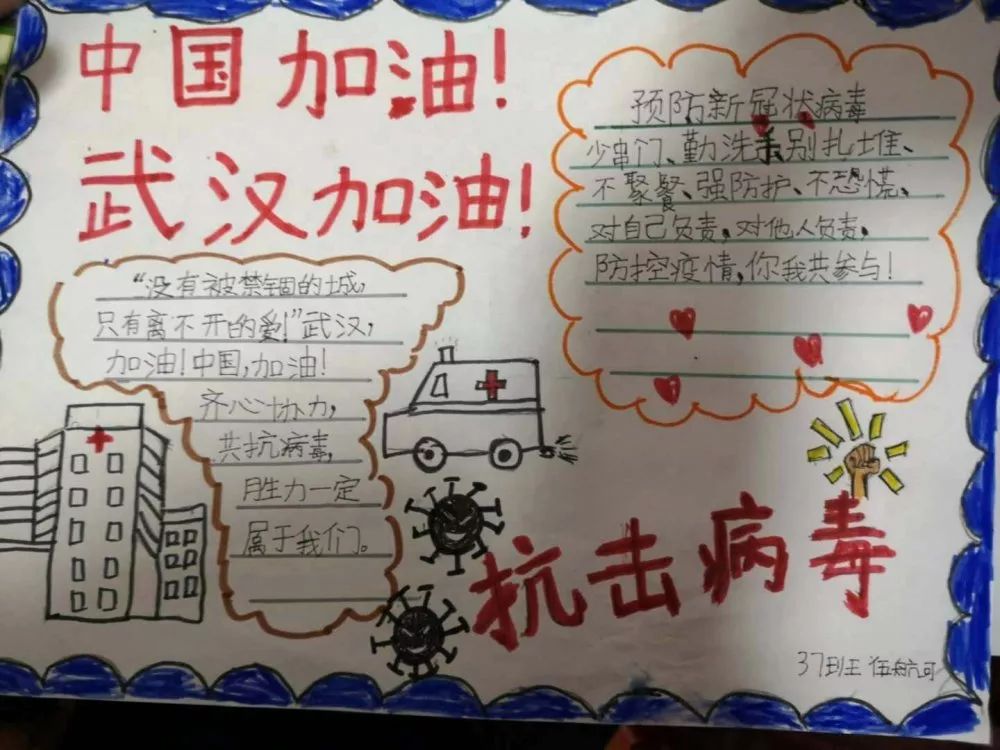 中国加油!
武汉加油!
预防新冠状病毒
少串门、勤洗手、别扎堆、
不聚餐、强防护、不恐慌、
对自己负责,对他人负责,
防控疫情,你我共参与!
“没有被禁锢的城,
只有离不开的爱!”武汉,
加油!中国,加油!
齐心协力,
共抗病毒,
胜力一定
属于我们。
抗击病毒
37班 伍航可